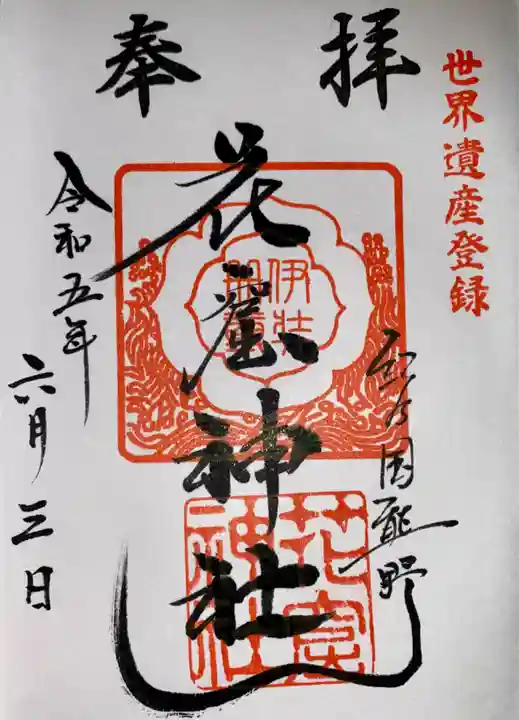 世界遺産登録
奉拝
国熊野
花窟神社
伊弉
冊尊
花窟
神社
令和五年
六月三日